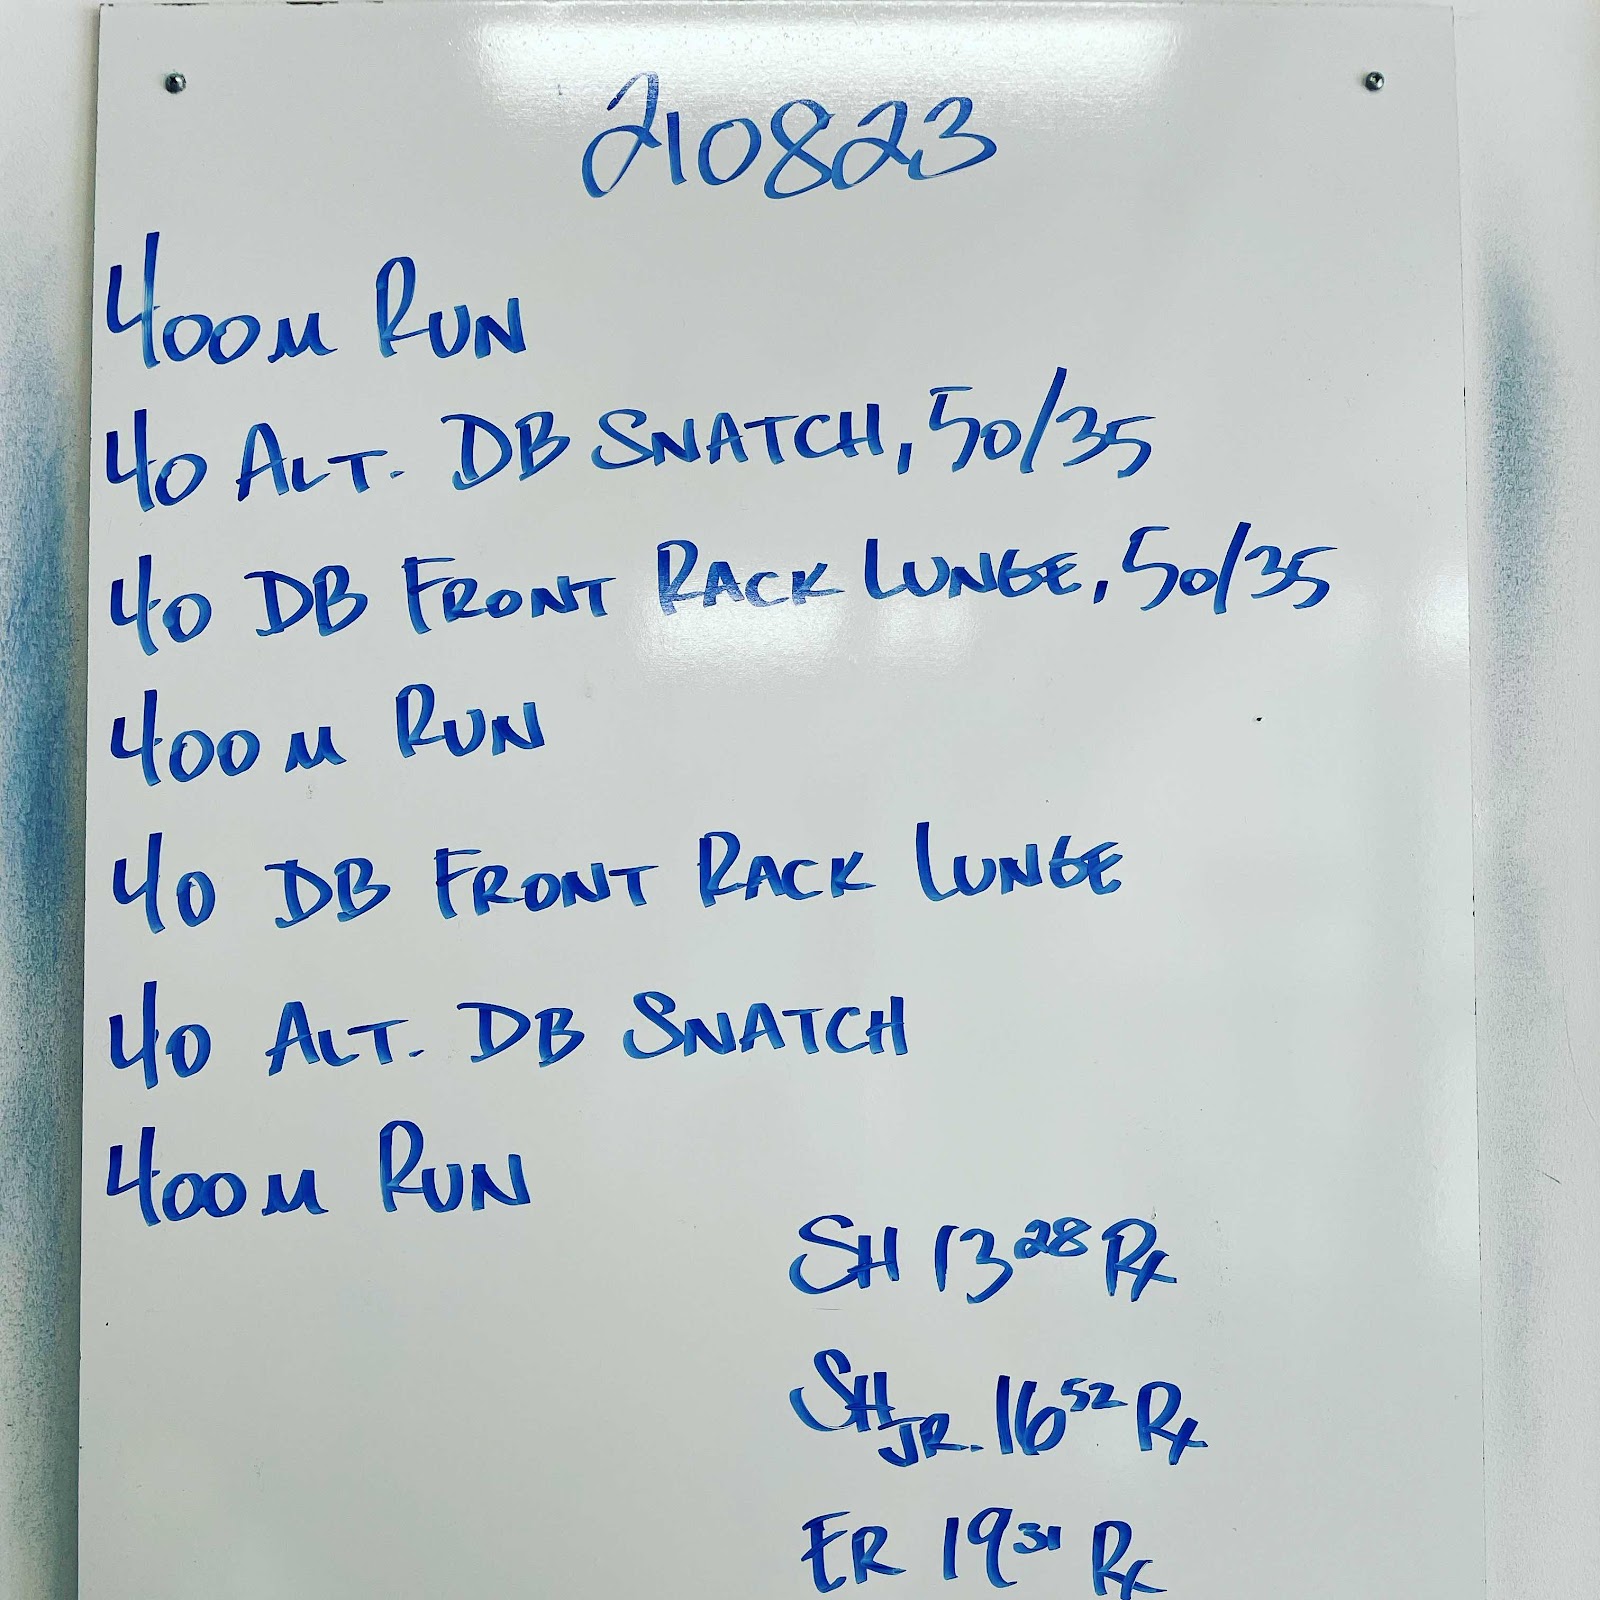 210823
400m Run
40 Alt. DB Snatch, 50/35
40 DB Front Rack Lunge, 50/35
400m Run
40 DB Front Rack Lunge
40 Alt. DB Snatch
400m Run
SH 13 28 Rx
SH JR. 16 52 Rx
ER 19 31 Rx